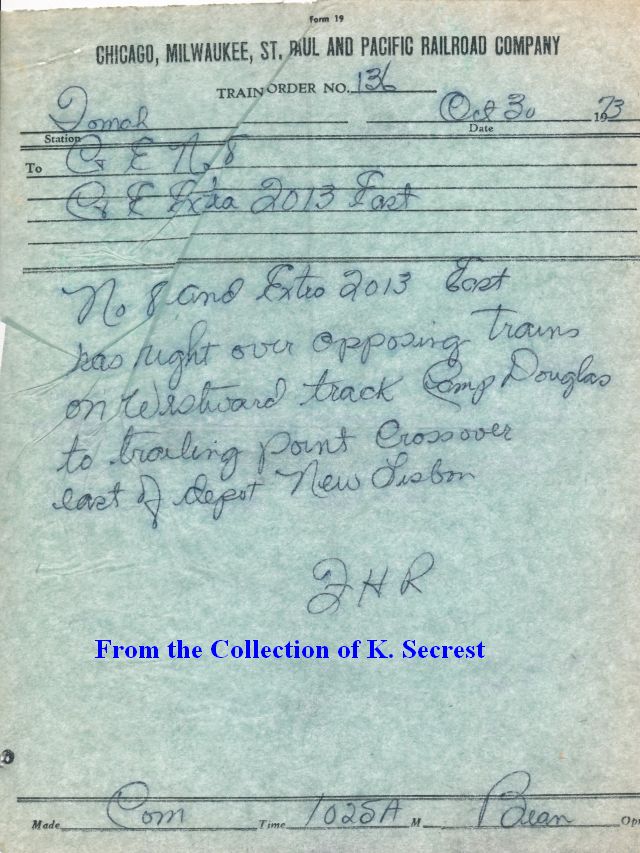 Form 19
CHICAGO, MILWAUKEE, ST. PAUL AND PACIFIC RAILROAD COMPANY
TRAIN ORDER NO. 136
Tomah Oct 30 1973
Station Date
To C & E No 8
C & E Extra 2013 East
No 8 and Extra 2013 East
has right over opposing trains
on Westward track Camp Douglas
to trailing point crossover
east of depot New Lisbon
From the Collection of K. Secrest
Made Com Time 1025A M Bean Opr